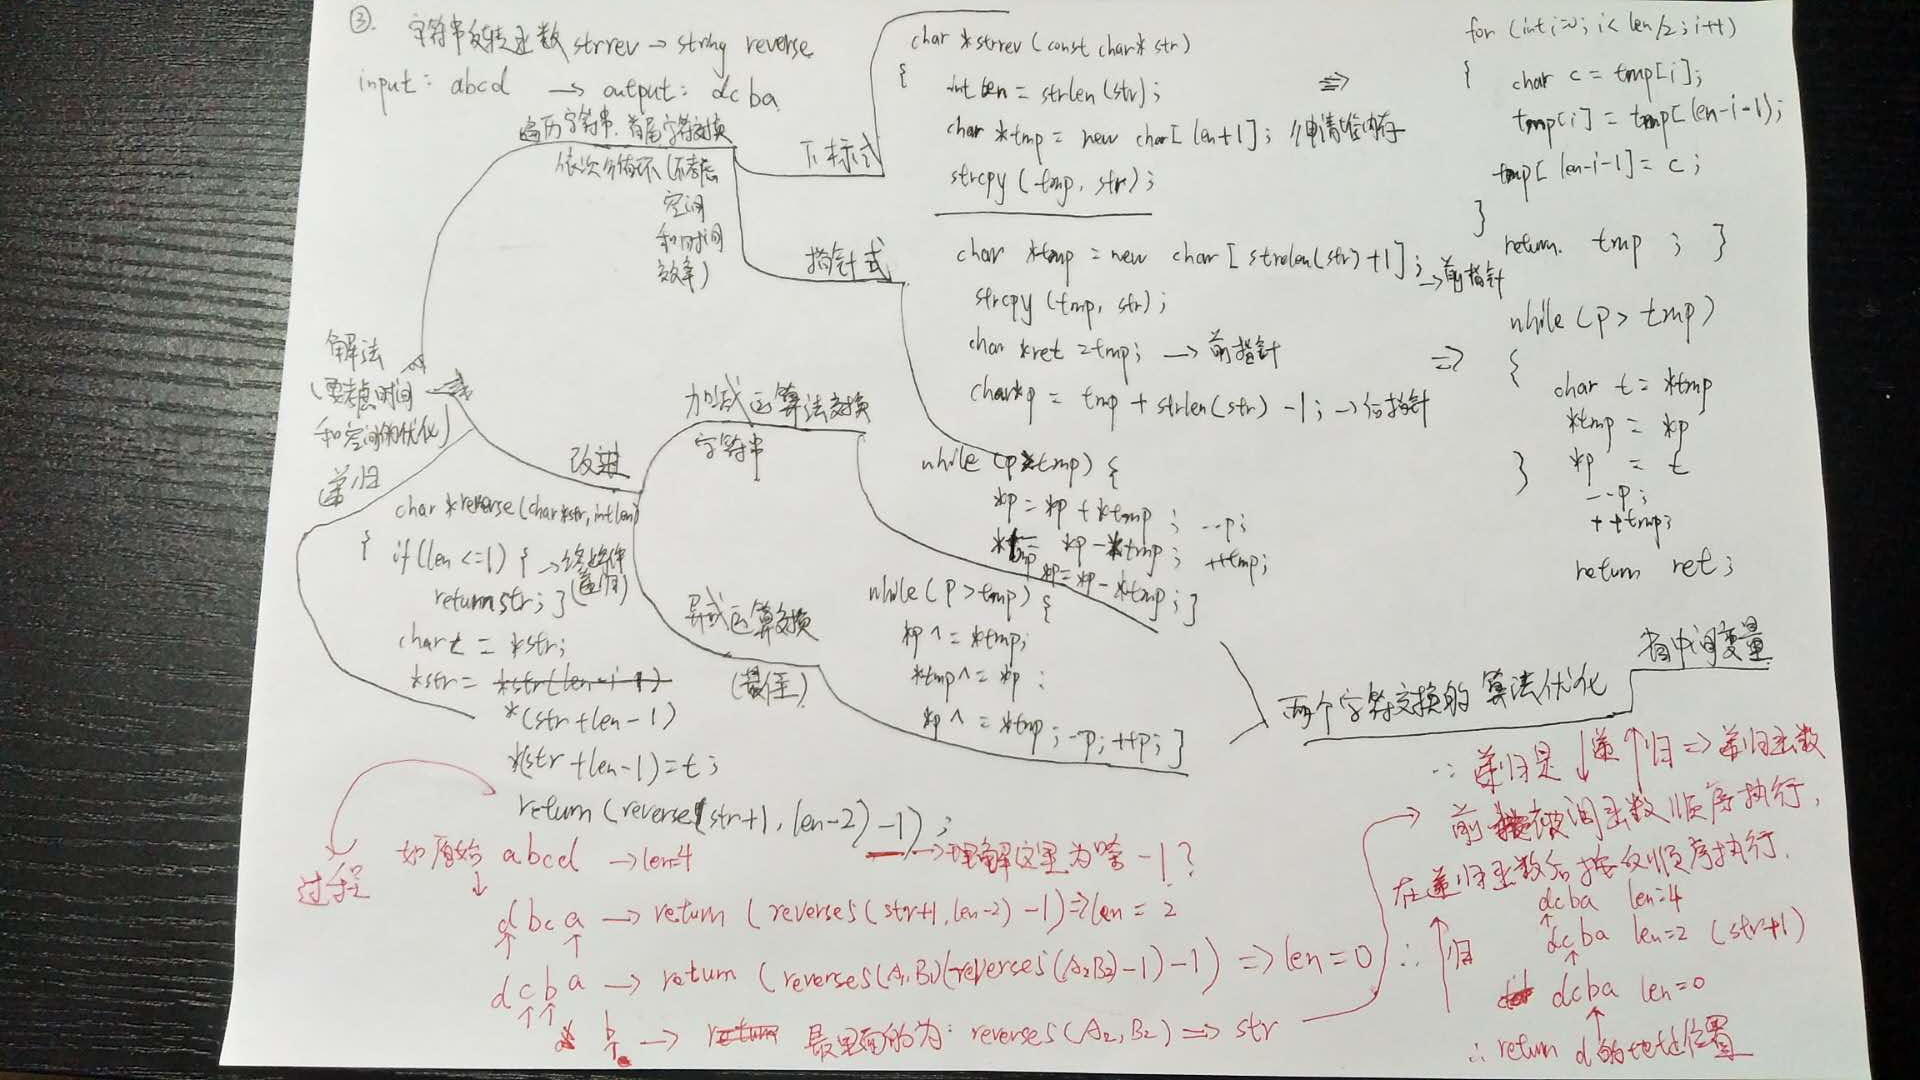 ③. 字符串反转函数 strrev → string reverse
input: abcd → output: dcba
遍历字符串,首尾字符交换
依次分循环(不考虑
空间
和时间
效率)
下标式
char *strrev (const char* str)
{
int len = strlen(str);
char *tmp = new char[len+1]; //申请堆内存
strcpy (tmp, str);
⇒
for (int i=0; i< len/2; i++)
{ char c = tmp[i];
tmp[i] = tmp[(len-i-1);
tmp[len-i-1] = c;
}
return tmp ; }
指针式
char *tmp = new char[strlen(str)+1]; →前指针
strcpy (tmp, str);
char *ret = tmp; → 前指针
char*p = tmp + strlen(str) -1; → 后指针
⇒
while (p > tmp)
{
char t = *tmp
*tmp = *p
} *p = t
--p;
++tmp;
return ret;
解法
(要考虑时间
和空间的优化)
改进
加减运算法交换
字符串
while (p>tmp) {
*p = *p + *tmp ; --p;
*tmp = *p - *tmp ; ++tmp;
*p = *p - *tmp ; }
异或运算交换
(最佳)
while (p > tmp) {
*p ^= *tmp;
*tmp ^= *p ;
*p ^= *tmp ; --p; ++p; }
两个字符交换的算法优化
省中间变量
递归
char *reverse (char *str, int len)
{ if (len <=1) { →终止条件
return str; } (递归)
char t = *str;
*str = *str(len-i-1)
*(str+len-1)
*(str+len-1) = t;
return (reverse(str+1, len-2) -1) ;
→理解这里为啥 -1?
过程
如原始 abcd → len=4
↓
dbca → return (reverses(str+1, len-2) -1) ⇒ len = 2
dcba → return (reverses(A1,B1)(reverses(A2B2)-1)-1) ⇒ len = 0
b → return 最里面的为: reverses(A2, B2) ⇒ str
∵ 递归是 ↓递 ↑归 ⇒ 递归函数
→ 前 被调函数顺序执行,
在递归函数后按反顺序执行.
∴ ↑归
dcba len=4
dcba len=2 (str+1)
dcba len=0
∴ return d 的 位置